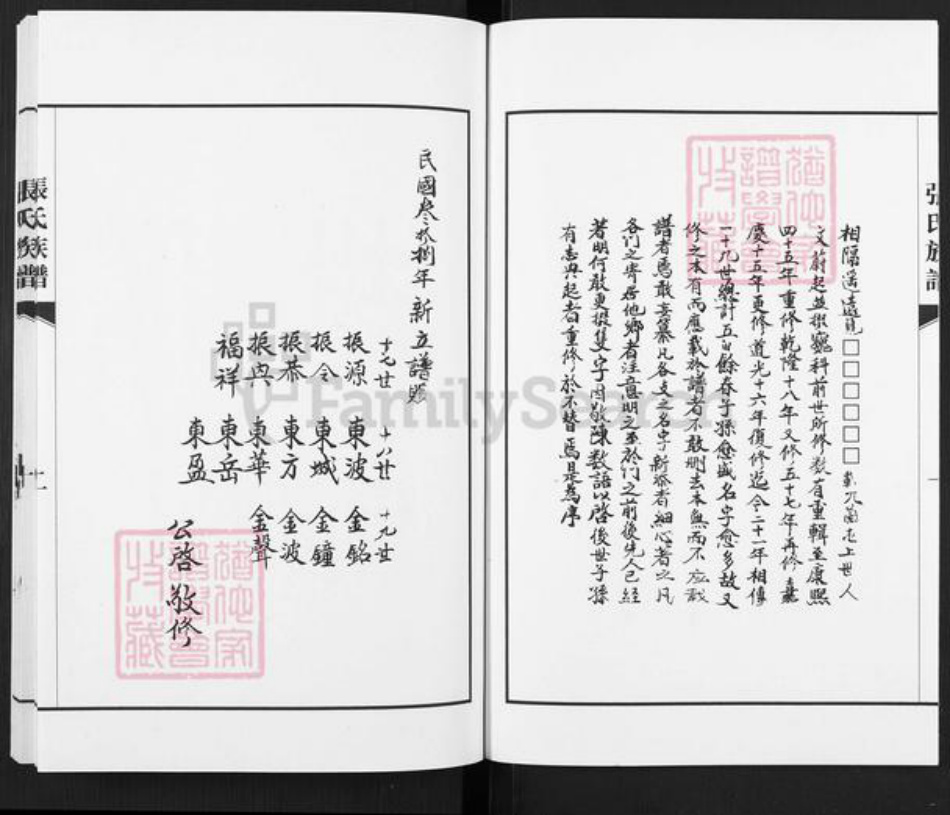 相隔遥遠見□□□□□□
上世人
文蔚起並掇巍科前世所修数有重輯至康熙
四十五年重修乾隆十八年又修五十七年再修嘉
慶十五年更修道光十六年復修迄今二十一年相傳
一十九世總計五百餘春子孫愈盛名字愈多故又
修之本有而應載於譜者不敢刪去本無而不應載
譜者焉敢妄纂凡各支之名字新添者細心者之凡
各门之寄居他鄉者注意明之至於门之前後先人已經
著明何敢更撥隻字因敬陳数語以啓後世子孫
有志興起者重修於不替焉是為序
民國叁拾捌年新立譜賬
十七廿 十八廿 十九廿
振源 東波 金銘
振令 東城 金鐘
振恭 東方 金波
振興 東華 金聲
福祥 東岳
東盈
公啓敬修
張氏族譜
張氏族譜
十一
猶他家譜學會收藏
猶他家譜學會收藏
FamilySearch